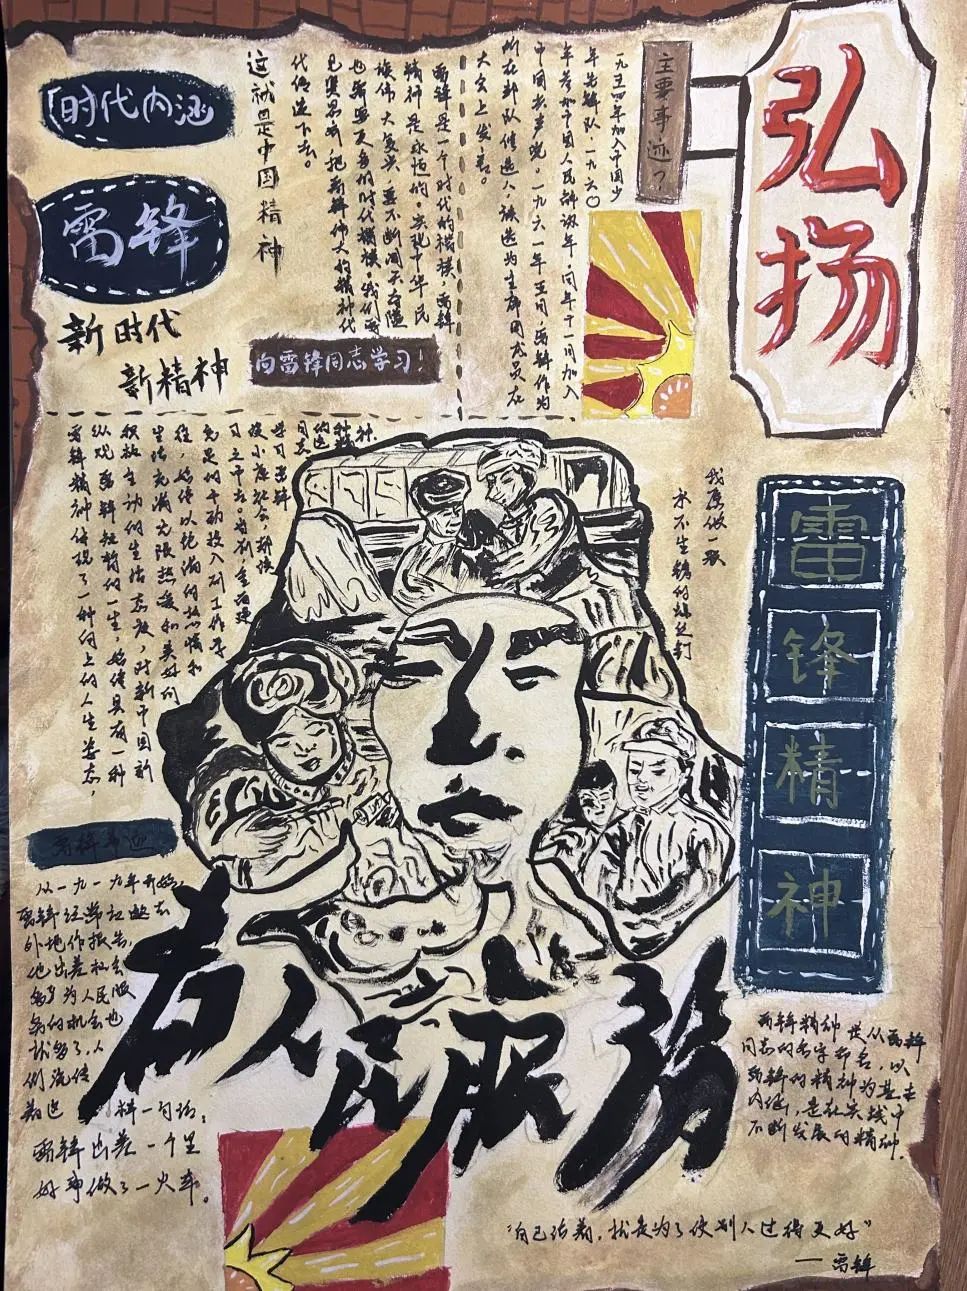 弘扬
主要事迹？
一九五四年加入中国少
年先锋队，一九六〇
年参加中国人民解放军，同年十一月加入
中国共产党。一九六一年五月，雷锋作为
所在部队候选人，被选为
大会上发言。
雷锋是一个时代的楷模，雷锋
精神是永恒的。实现中华民
族伟大复兴，要不断闯关夺隘
也需要更多的时代楷模。我们要
见贤思齐，把雷锋伟大的精神代
代传送下去。
这就是中国精神
时代内涵
雷锋
新时代
新精神
向雷锋同志学习！
我愿做一颗
永不生锈的螺丝钉
雷锋精神
充足的干劲投入到工作和
往，始终以饱满的热情和
生活充满无限热爱和美好向
积极主动的生活态度，对新中国新
纵观雷锋短暂的一生，始终具有一种
雷锋精神体现了一种向上的人生姿态，
雷锋事迹
从一九一九年开始
雷锋经常被邀去
外地作报告，
他出差机会
多了为人民服
务的机会也
就多了，人
们流传
着这样一句话：
雷锋出差一千里
好事做了一火车。
为人民服务
雷锋精神是从雷锋
同志的名字命名，以
雷锋的精神为基本
内涵，是在实践中
不断发展的精神。
“自己活着，就是为了使别人过得更好”
——雷锋